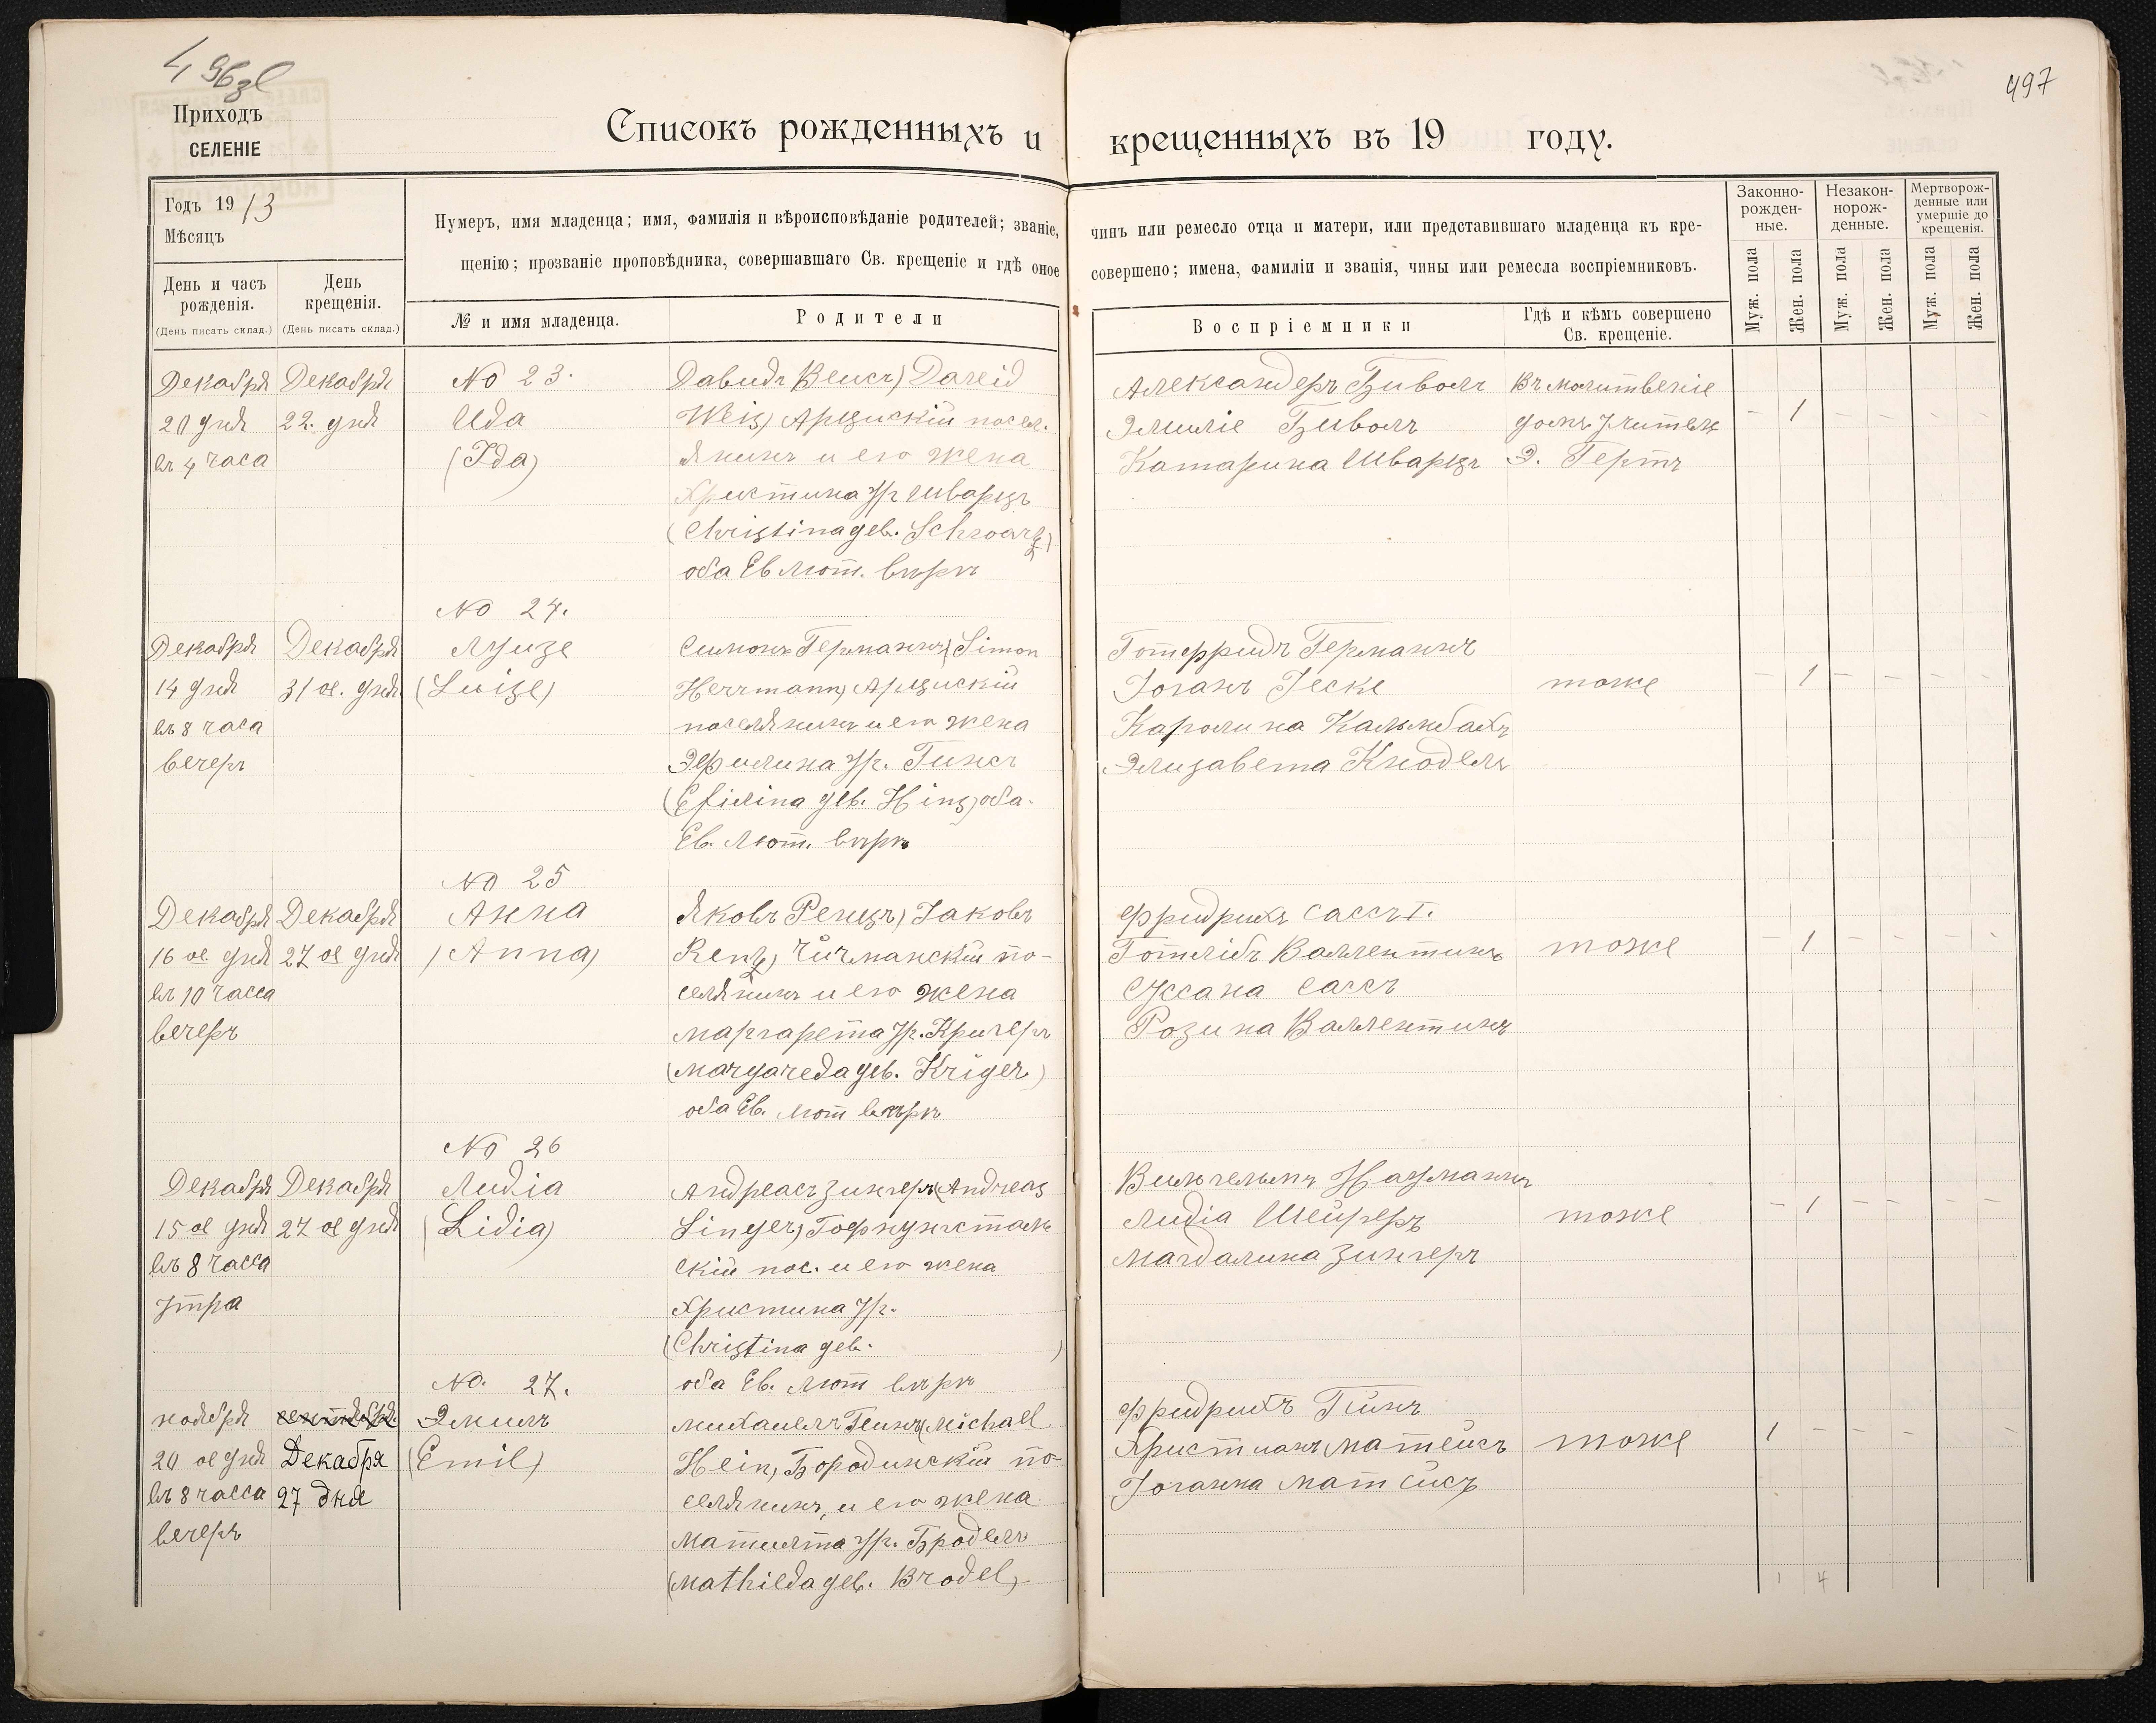 497
Приходъ
СЕЛЕНІЕ
Списокъ рожденныхъ и крещенныхъ въ 19 году.
Годъ 1913
Мѣсяцъ
День и часъ рожденія.
(День писать склад.)
День крещенія.
(День писать склад.)
Нумеръ, имя младенца; имя, фамилія и вѣроисповѣданіе родителей; званіе, чинъ или ремесло отца и матери, или представившаго младенца къ кре-
щенію; прозваніе проповѣдника, совершавшаго Св. крещеніе и гдѣ оное совершено; имена, фамиліи и званія, чины или ремесла воспріемниковъ.
№ и имя младенца.
Родители
Воспріемники
Гдѣ и кѣмъ совершено
Св. крещеніе.
Законно-
рожден-
ные.
Незакон-
норож-
денные.
Мертворож-
денные или
умершіе до
крещенія.
Муж. пола
Жен. пола
Муж. пола
Жен. пола
Муж. пола
Жен. пола
Декабря
20 дня
въ 4 часа
Декабря
22. дня
No 23.
Ида
(Ida)
Давидъ Веисъ) David
Weis) Арцискій посел.
янинъ и его жена
Христина ур Шварцъ
(Christina geb. Schwarz)
оба Ев Лют. вѣры
Александеръ Биволъ
Эмиліе Биволъ
Катарина Шварцъ
Въ молитвеніе
домъ Учитель
Э. Гертъ
- 1 - - - -
No 24.
Декабря
14 дня
въ 8 часа
вечеръ
Декабря
31 ое. дня.
Луизе
(Luise)
Симонъ Германнъ(Simon
Herrmann) Арцискій
поселянинъ и его жена
Эфилина ур. Гинсъ
(Efilina geb. Hins) оба.
Ев. Лют. вѣры
Готфридъ Германнъ
Іоганъ Іеске
Каролина Кальмбахъ
Элизабета Кнодель
тоже
- 1 - - - -
No 25
Декабря
16 ое дня
въ 10 часса
вечеръ
Декабря
27 ое дня
Анна
(Anna)
Яковъ Ренцъ) Jаковъ
Renz) Чичманскій по-
селянинъ и его жена
Маргарета ур. Кригеръ
(Margareda geb. Kriger)
оба Ев. Лют вѣры
Фридрихъ Сассъ I.
Готлібъ Валлентинъ
Сусана Сассъ
Розина Валлентинъ
тоже
- 1 - - - -
No 26
Декабря
15 ое дня
въ 8 часса
утра
Декабря
27 ое дня
Лидіа
(Lidia)
Андреасъ Зингеръ(Andreas
Singer) Гофнунгсталь
скій пос. и его жена
Христина ур.
(Christina geb. )
оба Ев. Лют вѣры
Вильгельмъ Наумannъ
Лидіа Шейреръ
Магдалина Зингеръ
тоже
- 1 - - - -
No. 27.
ноября
20 ое дня
въ 8 часса
вечеръ
Декабря
27 дня
Эмилъ
(Emil)
Михаиелъ Геинъ(Michael
Hein) Бородинскій по-
селянинъ, и его жена
Матилта ур. Бродель
(Mathilda geb. Brodel)
Фридрихъ Гейнъ
Христианъ Матейсъ
Іоганна Матейсъ
тоже
1 - - - - -
1 4